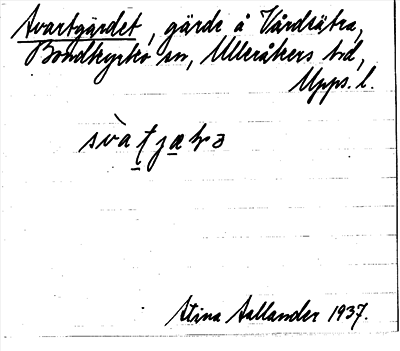 Svartgärdet, gärde å Vårdsätra,
Bondkyrko sn, Ulleråkers hd,
Upps. l.
Stina Aallander 1937.